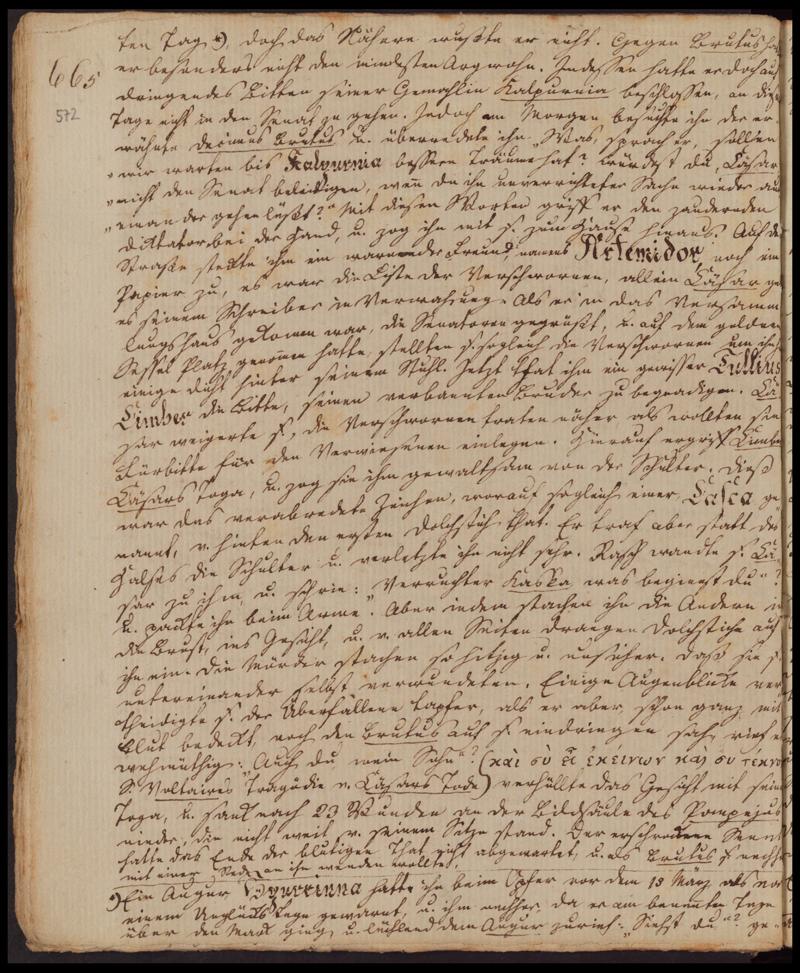 665
572
ten Tag *), doch das Nähere wußte er nicht. Gegen Brutus
er besonders nicht den mindesten Argwohn. Indessen hatte er doch auf
dringendes Bitten seiner Gemahlin Kalpurnia beschlossen, an
Tage nicht in den Senat zu gehen. Jedoch am Morgen besuchte ihn der er-
wähnte Decimus Brutus u. überredete ihn. „Was, sprach er, sollen
„wir warten bis Kalpurnia bessere Träume hat? Würdest du, Cäsar
„nicht den Senat beleidigen, wen du ihn unverrichteter Sache wieder aus
„einander gehen läßt?“ Mit diesen Worten griff er den zaudernden
Diktator bei der Hand, u. zog ihn mit s. zum Hause hinaus. Auf der
Straße steckte ihm ein warnender Freund, namens Artemidor noch ein
Papier zu, es war die Liste der Verschwornen, allein Cäsar
es seinem Schreiber in Verwahrung. Als er in das Versamm
lungshaus gekomen war, die Senatoren gegrüßt, u. auf dem goldnen
Sessel Platz genomen hatte, stellten s. sogleich die Verschwornen um ihn,
einige dicht hinter seinem Stuhl. Jetzt that ihm ein gewisser Tullius
Cimber die Bitte, seinen verbannten Bruder zu begnadigen. Cä
sar weigerte s., die Verschwornen traten näher als wollten sie
Fürbitte für den Verwiesenen einlegen. Hierauf ergriff Cimber
Cäsars Toga, u. zog sie ihm gewaltsam von der Schulter. Dieß
war das verabredete Zeichen, worauf sogleich einer, Casca ge
nannt, v. hinten den ersten Dolchstich that. Er traf aber statt des
Halses die Schulter u. verletzte ihn nicht sehr. Rasch wandte s. Cä
sar zu ihm, u. schrie: „Verruchter Kaska, was beginnst du“?
u. packte ihn beim Arme. Aber indem stachen ihn die Andern in
die Brust, ins Gesicht, u. v. allen Seiten drangen Dolchstiche auf
ihn ein. Die Mörder stachen so hitzig u. unsicher, daß sie s.
untereinander selbst verwundeten. Einige Augenblicke ver
theidigte s. der Überfallene tapfer, als er aber, schon ganz mit
Blut bedeckt, noch den Brutus auf s. eindringen sah, rief er
wehmüthig: „Auch du, mein Sohn“? (καὶ σὺ εἶ ἐκείνων καὶ σὺ τέκνον
S. Voltaires Tragödie v. Cäsars Tode) verhüllte das Gesicht mit seiner
Toga, u. sank nach 23 Wunden an der Bildsäule des Pompejus
nieder, die nicht weit v. seinem Sitze stand. Der erschrockene Senat
hatte das Ende der blutigen That nicht abgewartet, u. als Brutus s.
mit einer Rede an ihn wenden wollte,
*) Ein Augur Spurinna hatte ihn beim Opfer vor dem 15 März als
einem Unglückstage gewarnt, u. ihm nachher, da er am benannten Tage
über den Markt ging, u. lächelnd dem Augur zurief: „Siehst du“?